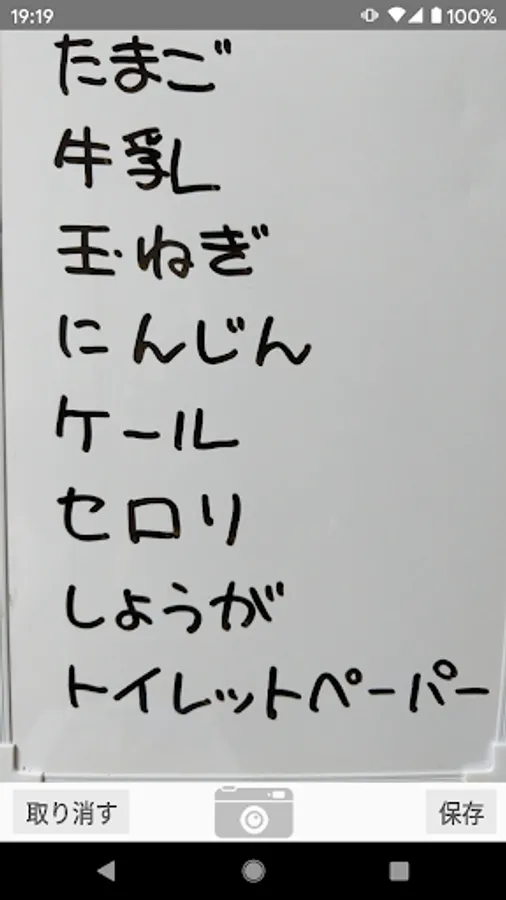 19:19 100%
たまご
牛乳
玉ねぎ
にんじん
ケール
セロリ
しょうが
トイレットペーパー
取り消す 保存